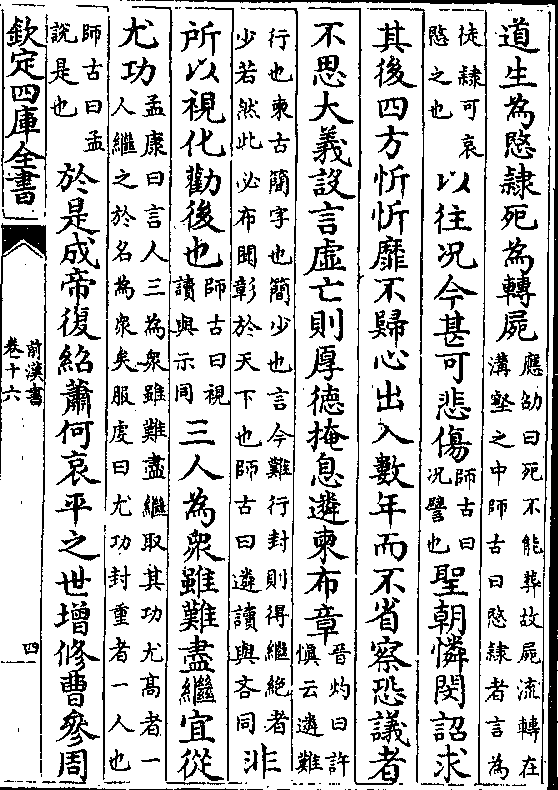 道生為愍隸死為轉屍應劭曰死不能葬故屍流轉在溝壑之中師古曰愍隸者言為
徒隸可哀愍之也以往况今甚可悲傷師古曰况譬也聖朝憐閔詔求
其後四方忻忻靡不歸心出入數年而不省察恐議者
不思大義設言虛亡則厚德掩息遴柬布章晉灼曰許慎云遴難
行也柬古簡字也簡少也言今難行封則得繼絶者少若然此必布聞彰於天下也師古曰遴讀與吝同非
所以視化勸後也師古曰視讀與示同三人為衆雖難盡繼宜從
尤功孟康曰言人三為衆雖難盡繼取其功尤髙者一人繼之於名為衆矣服䖍曰尤功封重者一人也
師古曰孟說是也於是成帝復紹蕭何哀平之世增修曹參周
欽定四庫全書
前漢書
卷十六
四